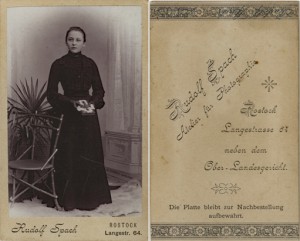 Rudolf Spach
ROSTOCK
Langestr. 64.
Rudolf Spach
Atelier für Photographie
Rostock
Langestrasse 64
neben dem
Ober-Landesgericht.
Die Platte bleibt zur Nachbestellung
aufbewahrt.